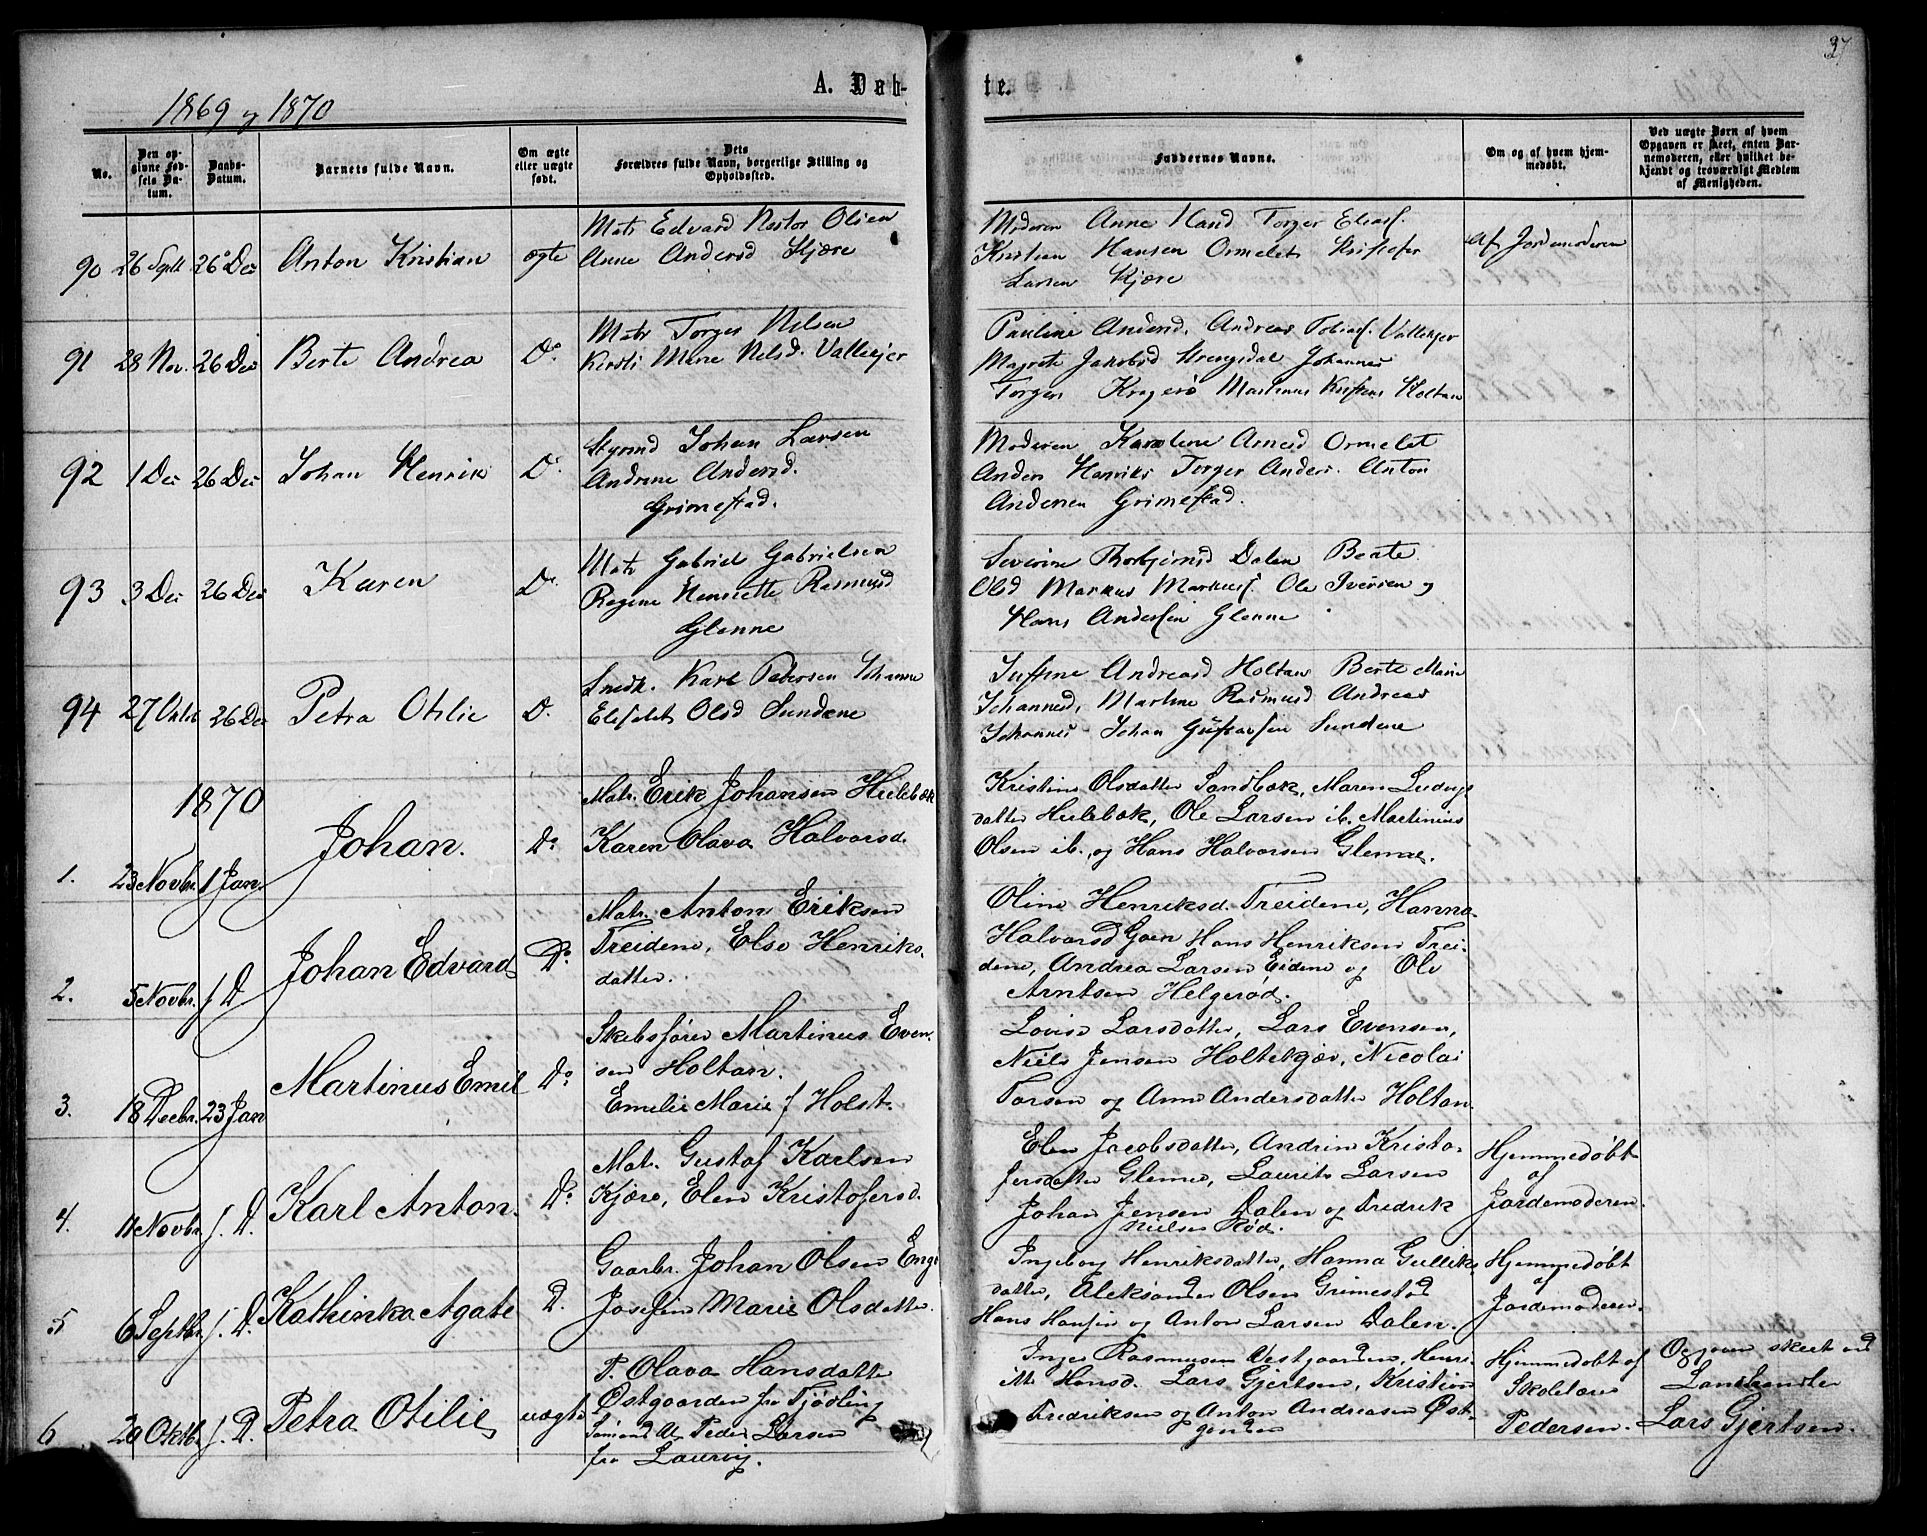 37
A. Døb-
te.
1869 og 1870
No.
Den opgivne Fødsels Datum.
Daabs-Datum.
Barnets fulde Navn.
Om ægte eller uægte født.
Dets Forældres fulde Navn, borgerlige Stilling og Opholdssted.
Faddernes Navne.
Om og af hvem hjemmedøbt.
Ved uægte Børn af hvem Opgaven er skeet, enten Barnemoderen, eller hvilket bekjendt og troværdigt Medlem af Menigheden.
90 26 Septr 26 Des Anton Kristian ægte
Matr Edvard Nestor Olsen
Anne Andersd Kjære
Moderen Anne Torger Elias.
Kristian Hansen Ormelet Kristofer
Larsen Kjære
Af Jordemoderen
91 28 Nov. 26 Des Berte Andrea Do
Matr Torger Nilsen
Kersti Marie Nelsd. Vallekjer
Pauline Andersd. Andreas Tobias. Vallekjer
Magrete Jakobsd Strengsdal Johannes
Torger Kragerø Mathinus Holtan
92 1 Des 26 Des Johan Henrik Do
Styrmd Johan Larsen
Andrine Andersd.
Grimestad.
Moderen Karoline Arnesd Ormelet
Anders Henriks Torger Anders. Anton
Andersen Grimestad.
93 3 Des 26 Des Karen Do
Matr Gabriel Gabrielsen
Regine Henriette Rasmusd
Glenne
Severine Thorbjørnsd Dalen Berte
Olsd Markus Markus. Ole Iversen og
Hans Anderssen Glenne
94 27 Oktr 26 Des Petra Otilie Do
Snedk. Karl Pedersen Johanne
Elisabet Olsd Sundene
Andreasd Holtan Berte Marie
Johannesd, Martine Rasmusd Andreas
Johannes Johan Gustavsen Sundene
1870
1. 23 Novbr. 1 Jan. Johan. Do
Matr. Erik Johansen Hulebæk
Karen Olava Halvorsd.
Kristine Olsdatter Sandbæk, Maren Ludvigs
datter Hulebæk, Ole Larsen ib. Martinius
Olsen ib., og Hans Halvorsen Glenne.
2. 5 Novbr. s. D Johan Edvard Do
Matr. Anton Eriksen
Treidene, Else Henriks-
datter.
Oline Henriksd. Treidene, Hanna
Halvorsd Gaen Hans Henriksen Trei-
dene, Andrea Larsen Eidene og Ole
Arntsen Helgerød.
3. 18 Decbr. 23 Jan Martinus Emil Do
Skibsfører Martinus Even-
sen Holtan.
Emilie Marie f Holst.
Lovise Larsdatter, Lars Evensen,
Niels Jensen Holtekjær, Nicolai
Torsen og Anne Andersdatter Holtan.
4. 11 Novbr s. D. Karl Anton. Do
Mat. Gustaf Karlsen
Kjære, Elen Kristofersd.
Elen Jacobsdatter, Andrine Kristo-
fersdatter Glenne, Laurits Larsen
Johan Jensen Dalen og Fredrik
Nielsen Rød.
Hjemmedøbt
af
Jordemoderen.
5 6 Septbr s. D. Kathinka Agate D.
Gaarbr. Johan Olsen Enge
Josefine Marie Olsdatter.
Ingeborg Henriksdatter, Hanna Gulliks
datter, Aleksander Olsen Grimestad
Hans Hansen og Anton Larsen Dalen.
Hjemmedøbt
af
Jordemoderen.
6 20 Oktb. s. D. Petra Otilie uægte
P. Olava Hansdatter
Østgaarden fra Tjødling
Sømand Peder Larsen
fra Laurvig.
Inger Rasmusen Vestgaarden, Henri-
ette Hansd. Lars Gjertsen, Kristian
Fredriksen og Anton Andreasen Øst-
gaarden
Hjemmedøbt af
Skolelærer
Pedersen.
Opgaven skeet ved
Landhandler
Lars Gjertsen.